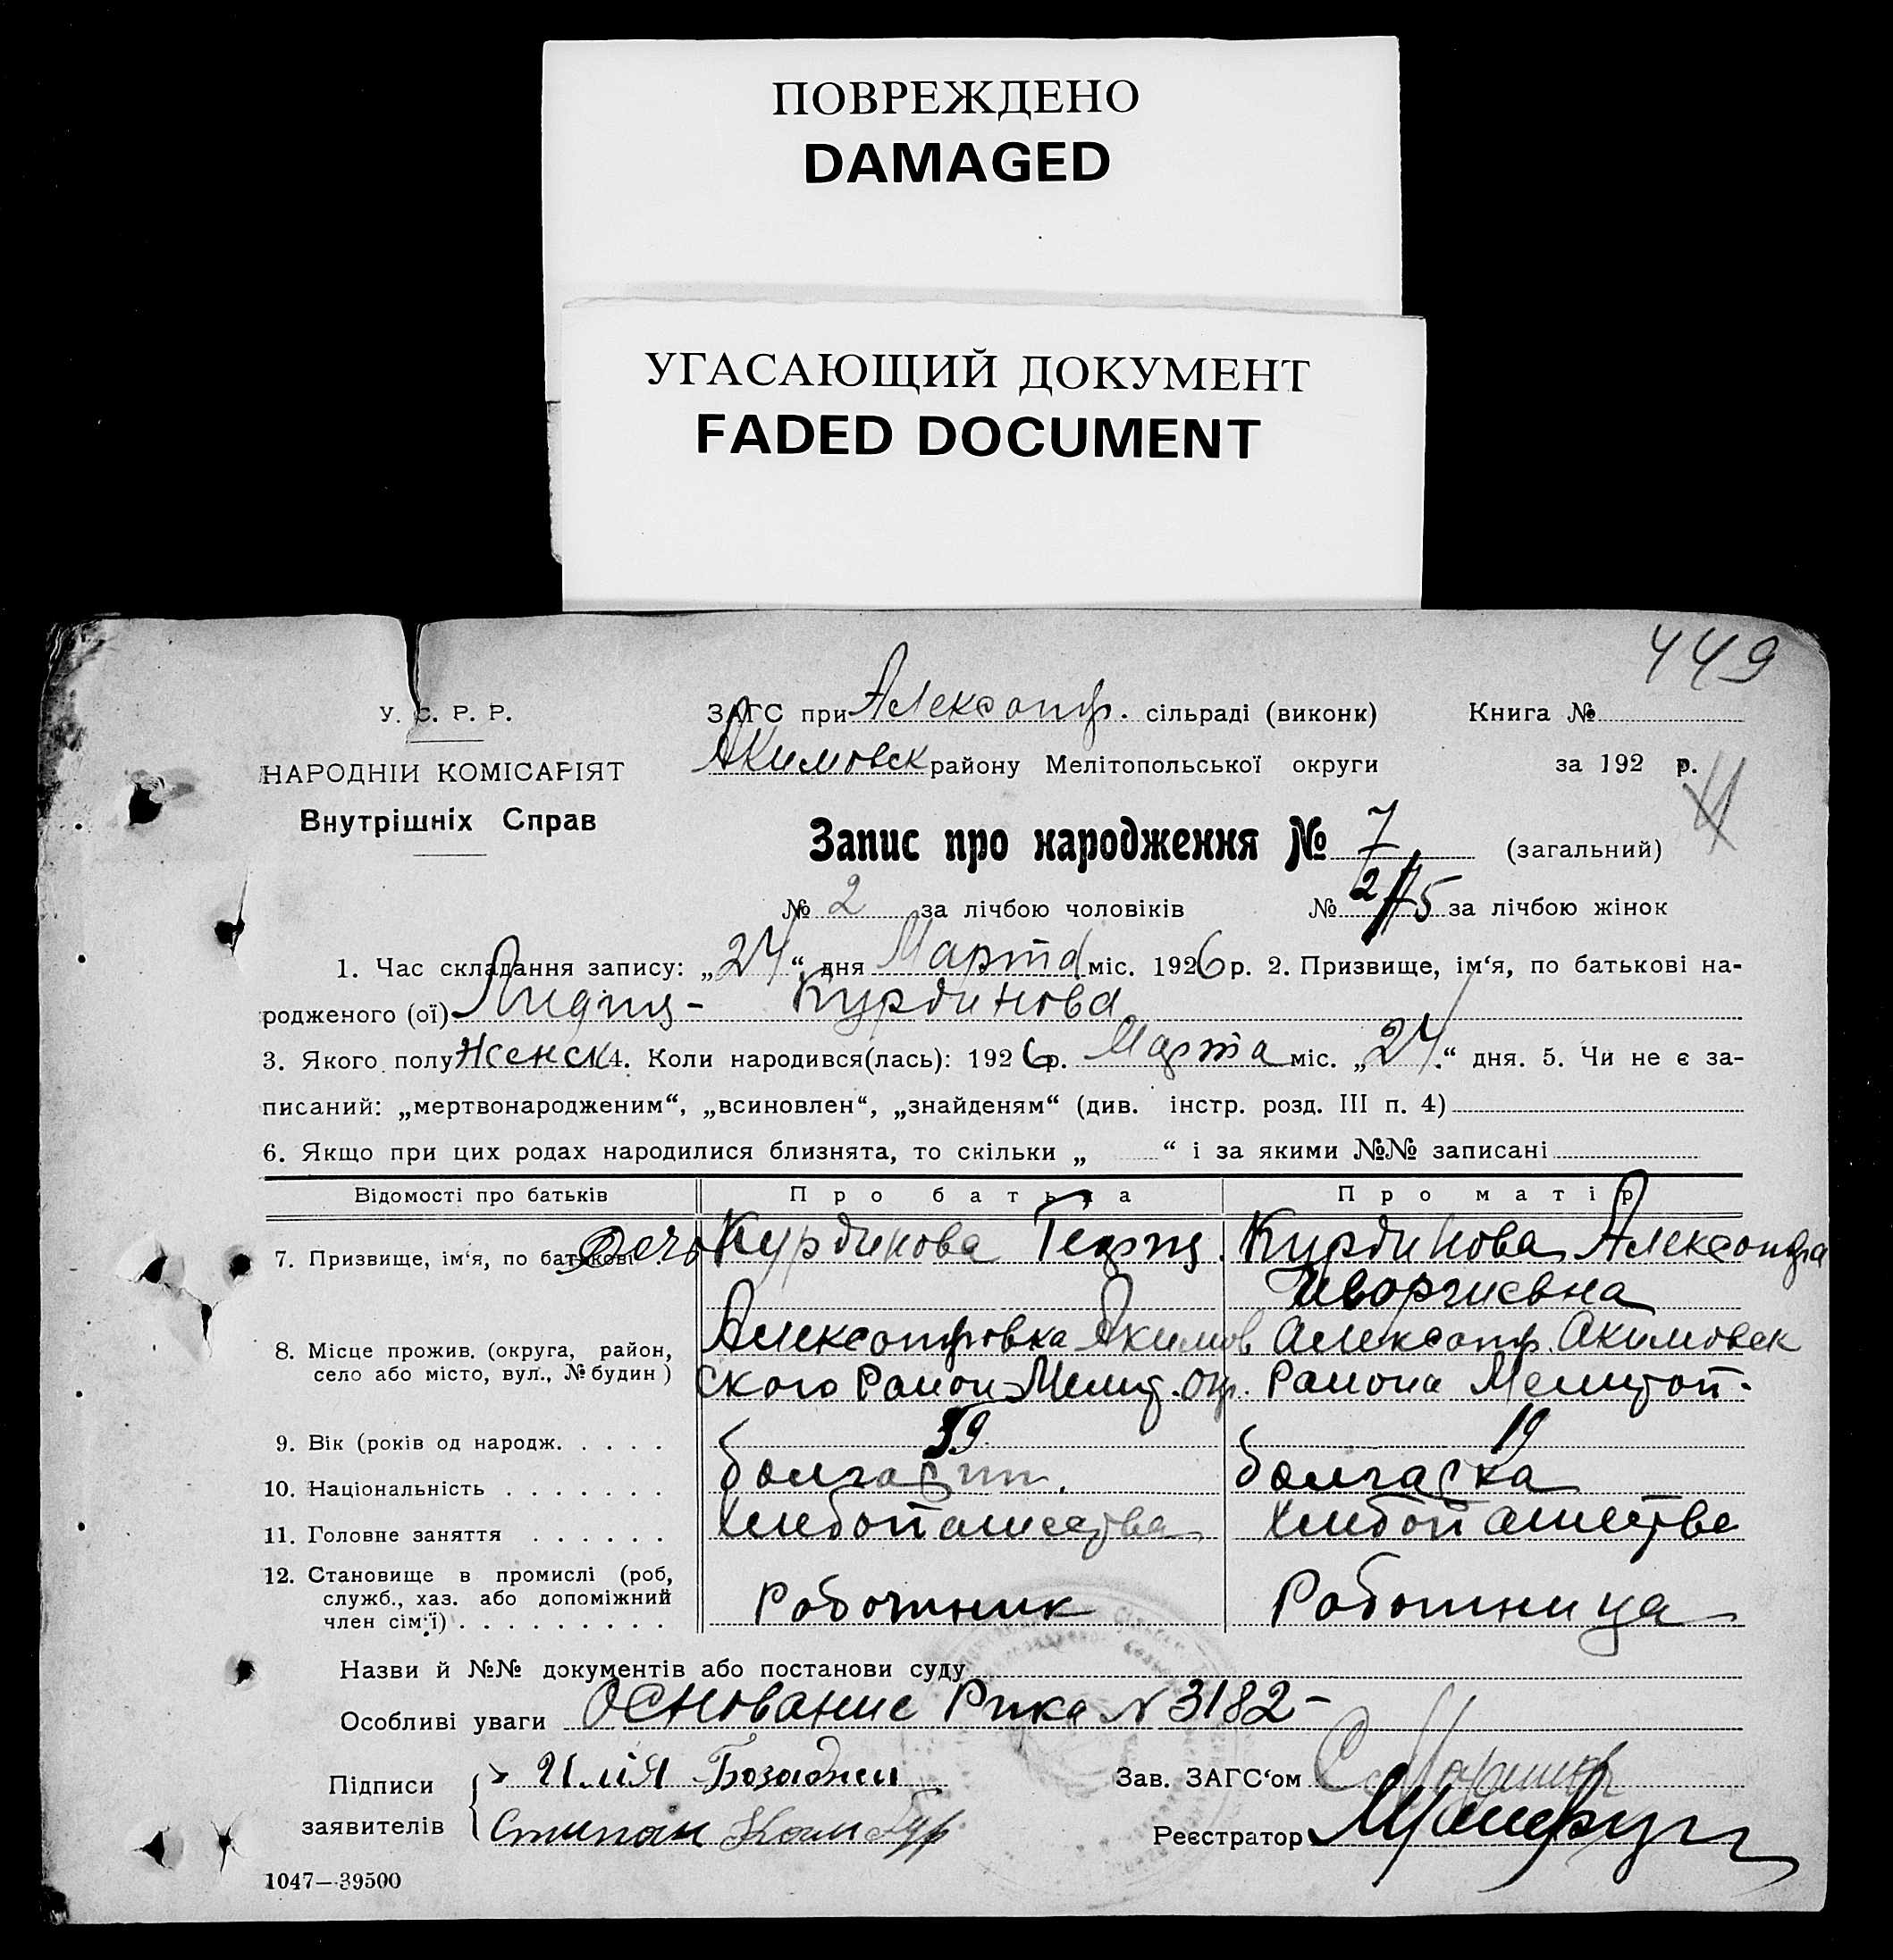 ПОВРЕЖДЕНО
DAMAGED
УГАСАЮЩИЙ ДОКУМЕНТ
FADED DOCUMENT
449
У. С. Р. Р.
ЗАГС при Александр. сільраді (виконк) Книга №
НАРОДНІЙ КОМІСАРІЯТ
Акимовск району Мелітопольської округи за 192 р.
Внутрішніх Справ
Запис про народження № 7 (загальний)
№ 2 за лічбою чоловіків № 5 за лічбою жінок
1. Час складання запису: „24“ дня Марта міс. 1926 р. 2. Призвище, ім‘я, по батькові на-
родженого (ої) Лидия - Курдинова
3. Якого полу Женск 4. Коли народився(лась): 1926 р. Марта міс. „24“ дня. 5. Чи не є за-
писаний: „мертвонародженим“, „всиновлен“, „знайденям“ (див. інстр. розд. III п. 4)
6. Якщо при цих родах народилися близнята, то скільки „ “ і за якими №№ записані
Відомості про батьків Про батька Про матір
7. Призвище, ім‘я, по батькові Дочь Курдинова Курдинова Александра
Иворгиевна
8. Місце прожив. (округа, район, село або місто, вул., № будин) Александровка Акимов Александр. Акимовск
ского Район Мелит. Окр. Района Мелитоп.
9. Вік (років од народж. . . . . 19
10. Національність . . . . . . . болгарин. болгарка
11. Головне заняття . . . . . . Хлебопашества Хлебопашества
12. Становище в промислі (роб, служб., хаз. або допоміжний член сім‘ї) . . . . . . . . . Работник Работница
Назви й №№ документів або постанови суду
Особливі уваги Основание Рика № 3182 -
Підписи заявителів Илія Базаджи
Степан
Зав. ЗАГС‘ом
Реєстратор
1047—39500